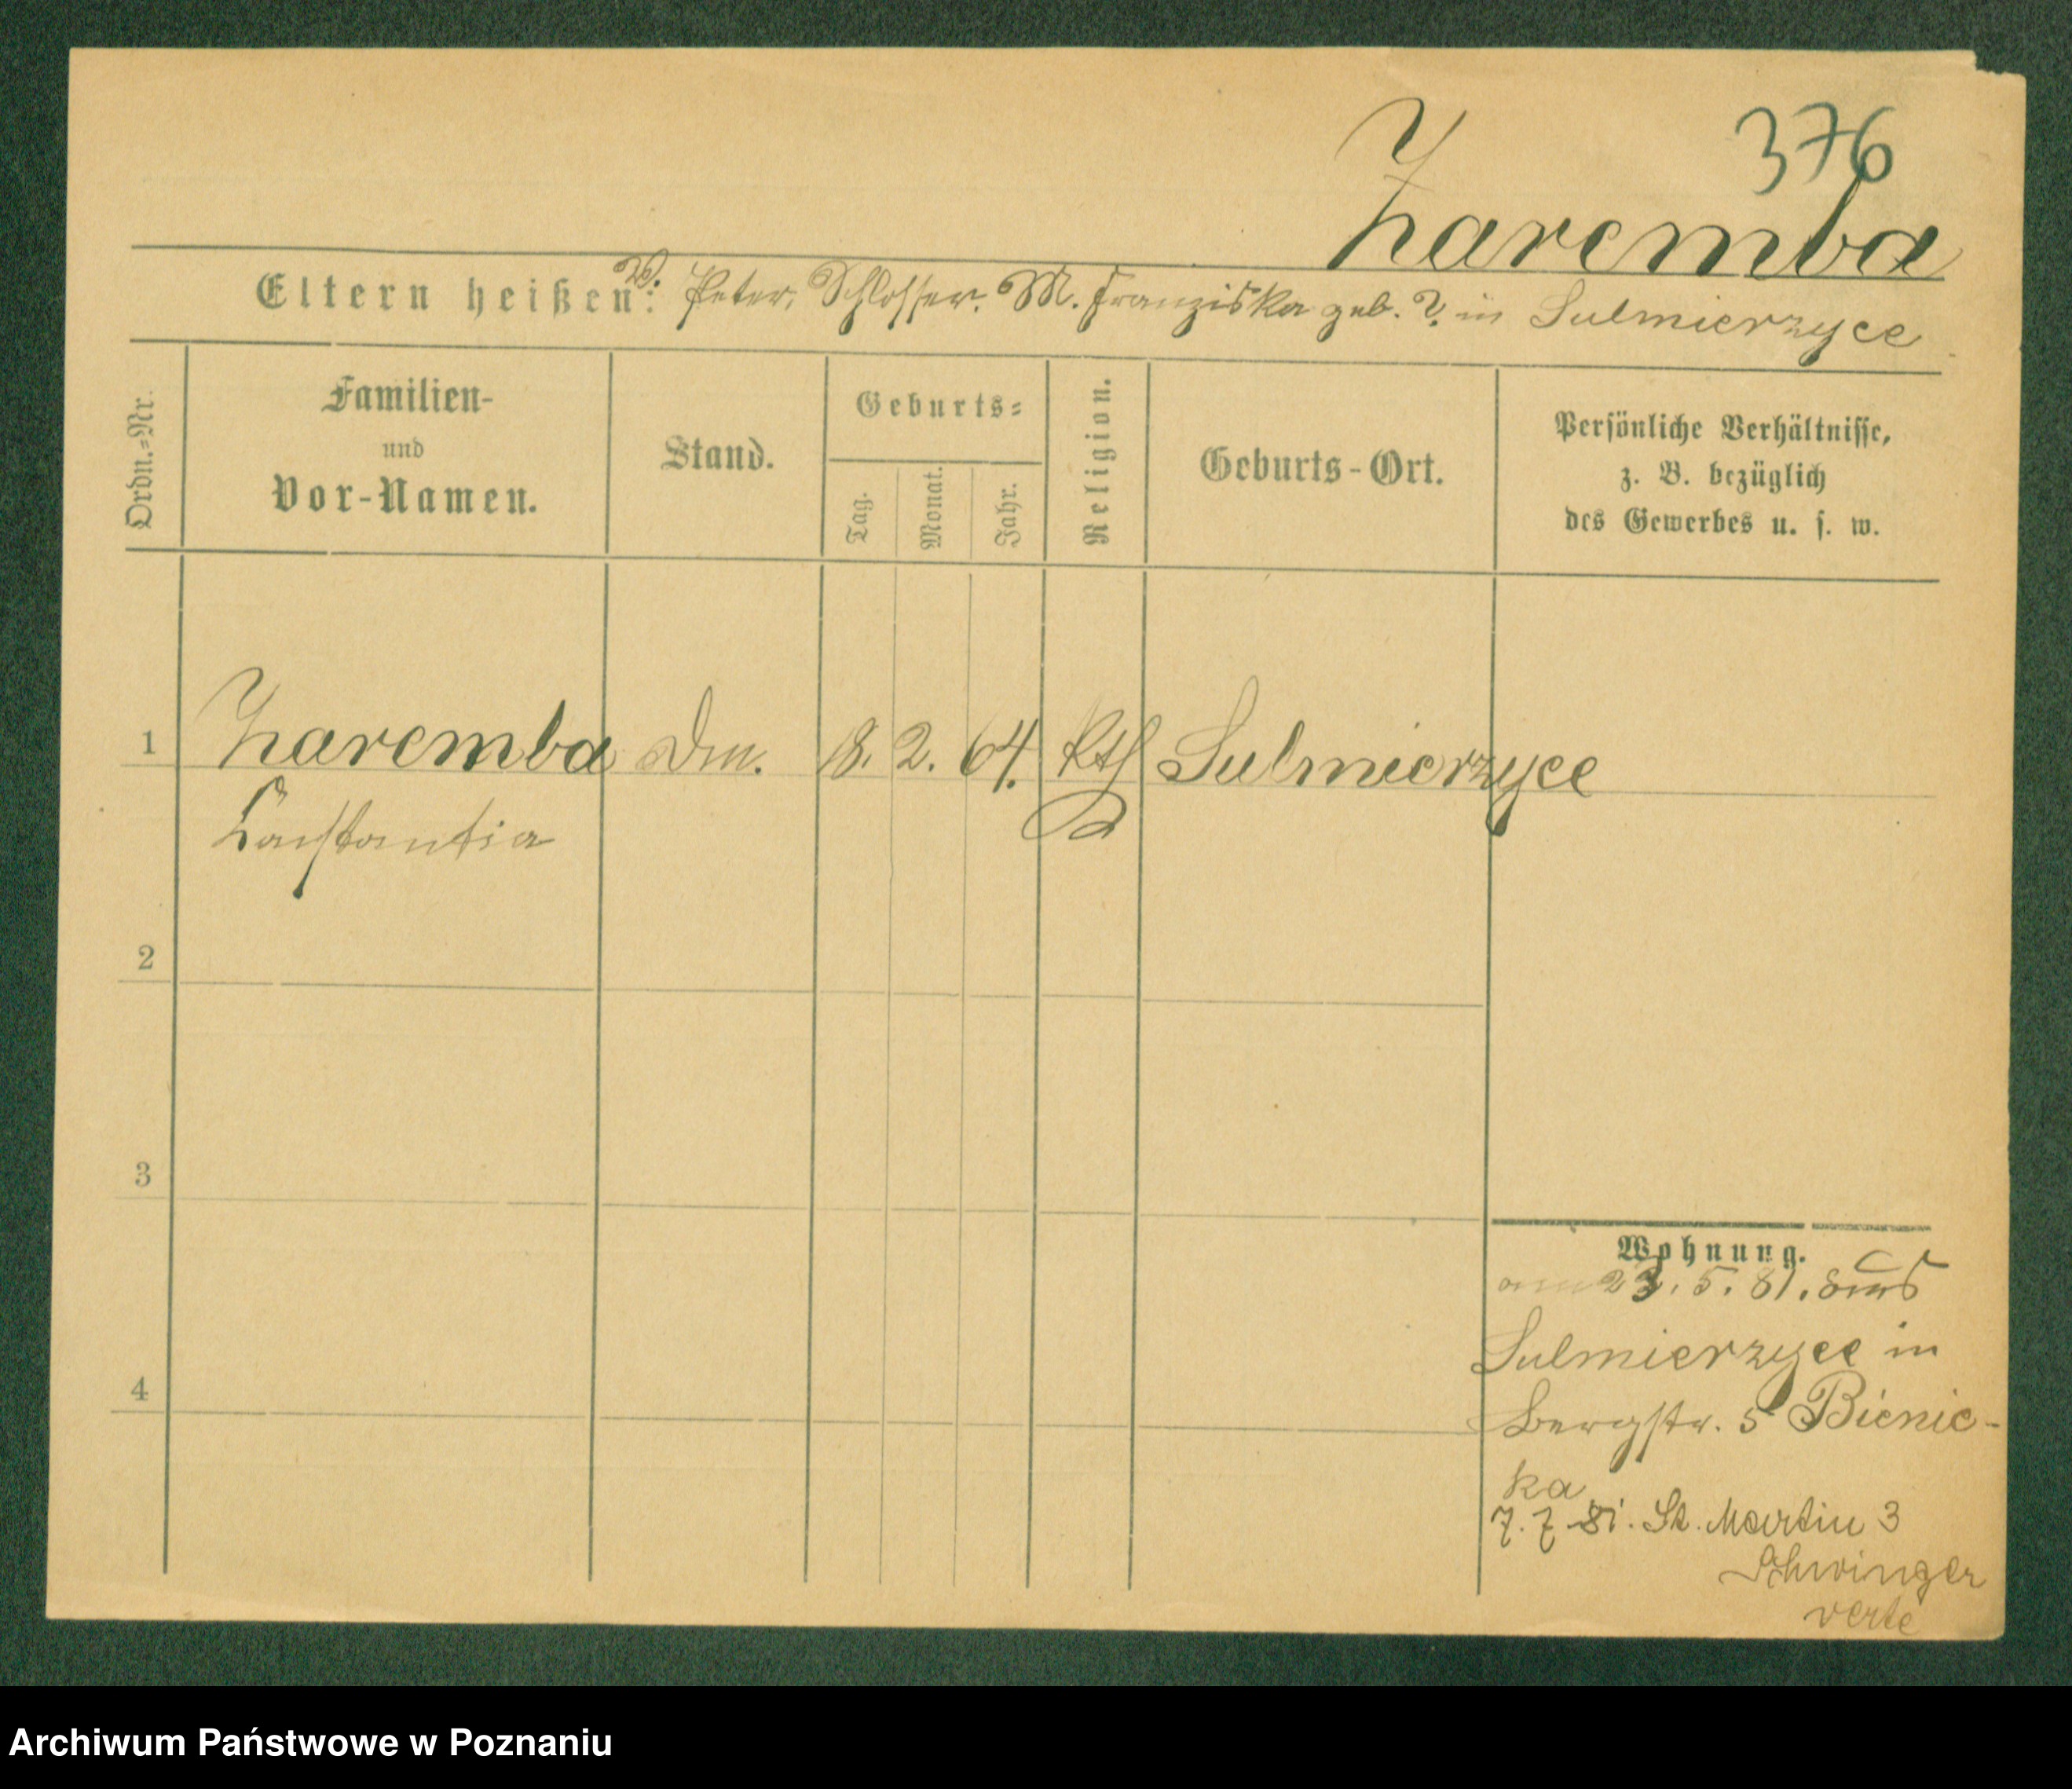 376
Zaremba
Eltern heißen: V. Peter, Schlosser. M. Franziska geb. ?. in Sulmierzyce
Ordn.=Nr.
Familien-
und
Vor-Namen.
Stand.
Geburts=
Tag.
Monat.
Jahr.
Religion.
Geburts-Ort.
Persönliche Verhältnisse,
z. B. bezüglich
des Gewerbes u. s. w.
1 Zaremba 18. 2. 64. kth Sulmierzyce
Constantia
2
3
4
Wohnung.
am 23. 5. 81. aus
Sulmierzyce in
Bergstr. 5 Bienic-
ka
7. 7. 81. St. Martin 3
Schwinger
verte
Archiwum Państwowe w Poznaniu